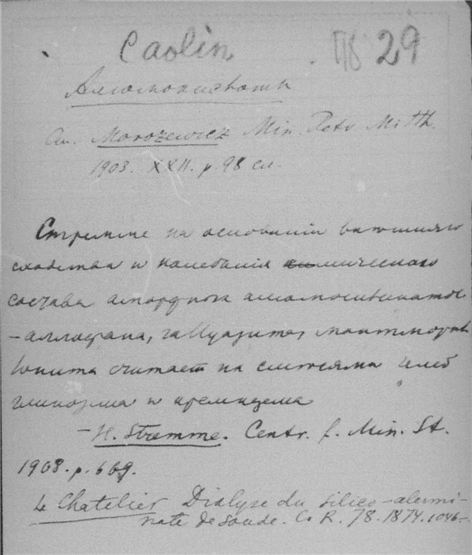 Caolin 29
Алюмокислоты
См. Morozewicz Min. Petr. Mitth.
1903. XXII. p 98 сл.
Стремме на основании внешняго
сходства и колебания химического
состава аморфнога алюмосиликатов
- аллофана, галлуазита, монтморил
лонита считает их смесями гелей
глинозма и кремнезема
- H. Stremme. Centr. f. Min. St.
1908. p. 669.
Le Chatelier Dialyse du silico-alumi-
nate de soude. C. R. 78. 1874. 1046-